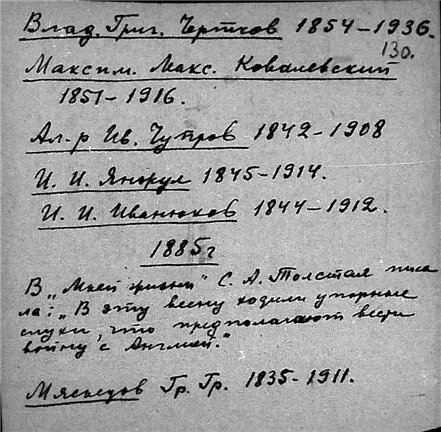 Влад. Григ. Чертков 1854-1936.
130.
Максим. Макс. Ковалевский
1851-1916.
Ал-р Ив. Чупров 1842-1908
И. И. Янжул 1845-1914.
И. И. Иванюков 1844-1912.
1885г
В „Моей жизни" С. А. Толстая писа
ла: „В эту весну ходили упорные
слухи, что предполагают вести
войну с Англией."
Мясоедов Гр. Гр. 1835-1911.